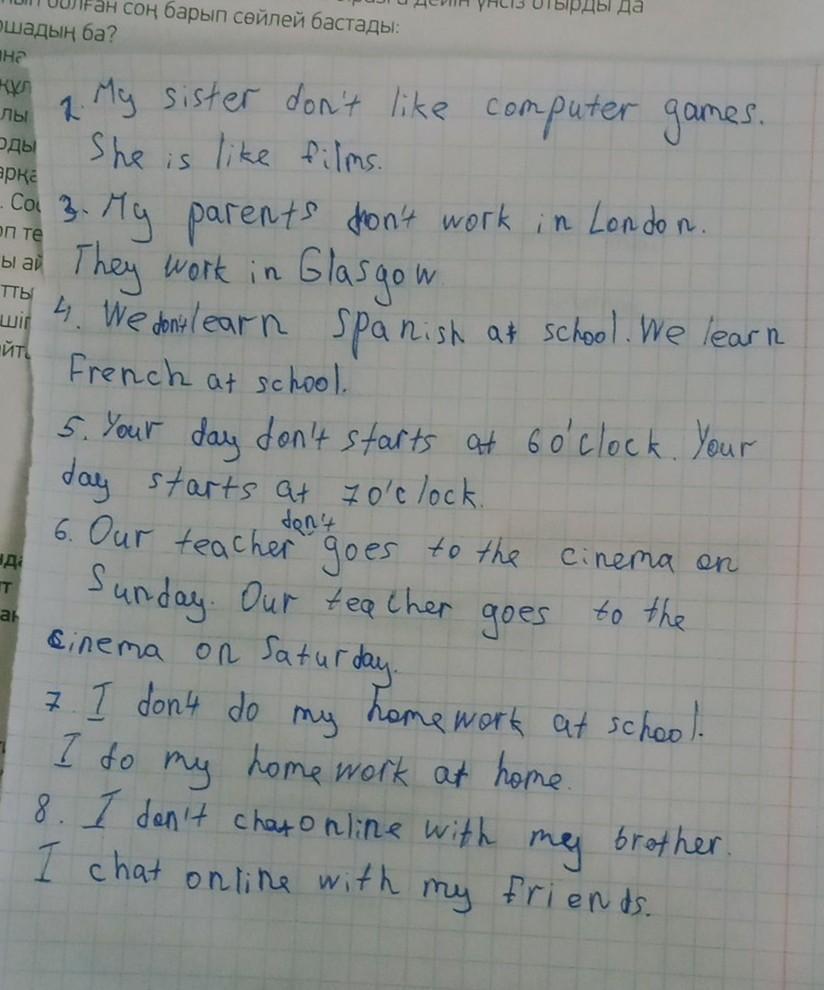 болған соң барып сөйлей бастады:
ба?
2. My sister don't like computer games.
She is like films.
3. My parents don't work in London.
They work in Glasgow
4. We don't learn Spanish at school. We learn
French at school.
5. Your day don't starts at 6 o'clock. Your
day starts at 7 o'clock.
6. Our teacher don't goes to the cinema on
Sunday. Our teacher goes to the
cinema on Saturday.
7. I don't do my homework at school.
I do my homework at home.
8. I don't chat online with my brother.
I chat online with my friends.